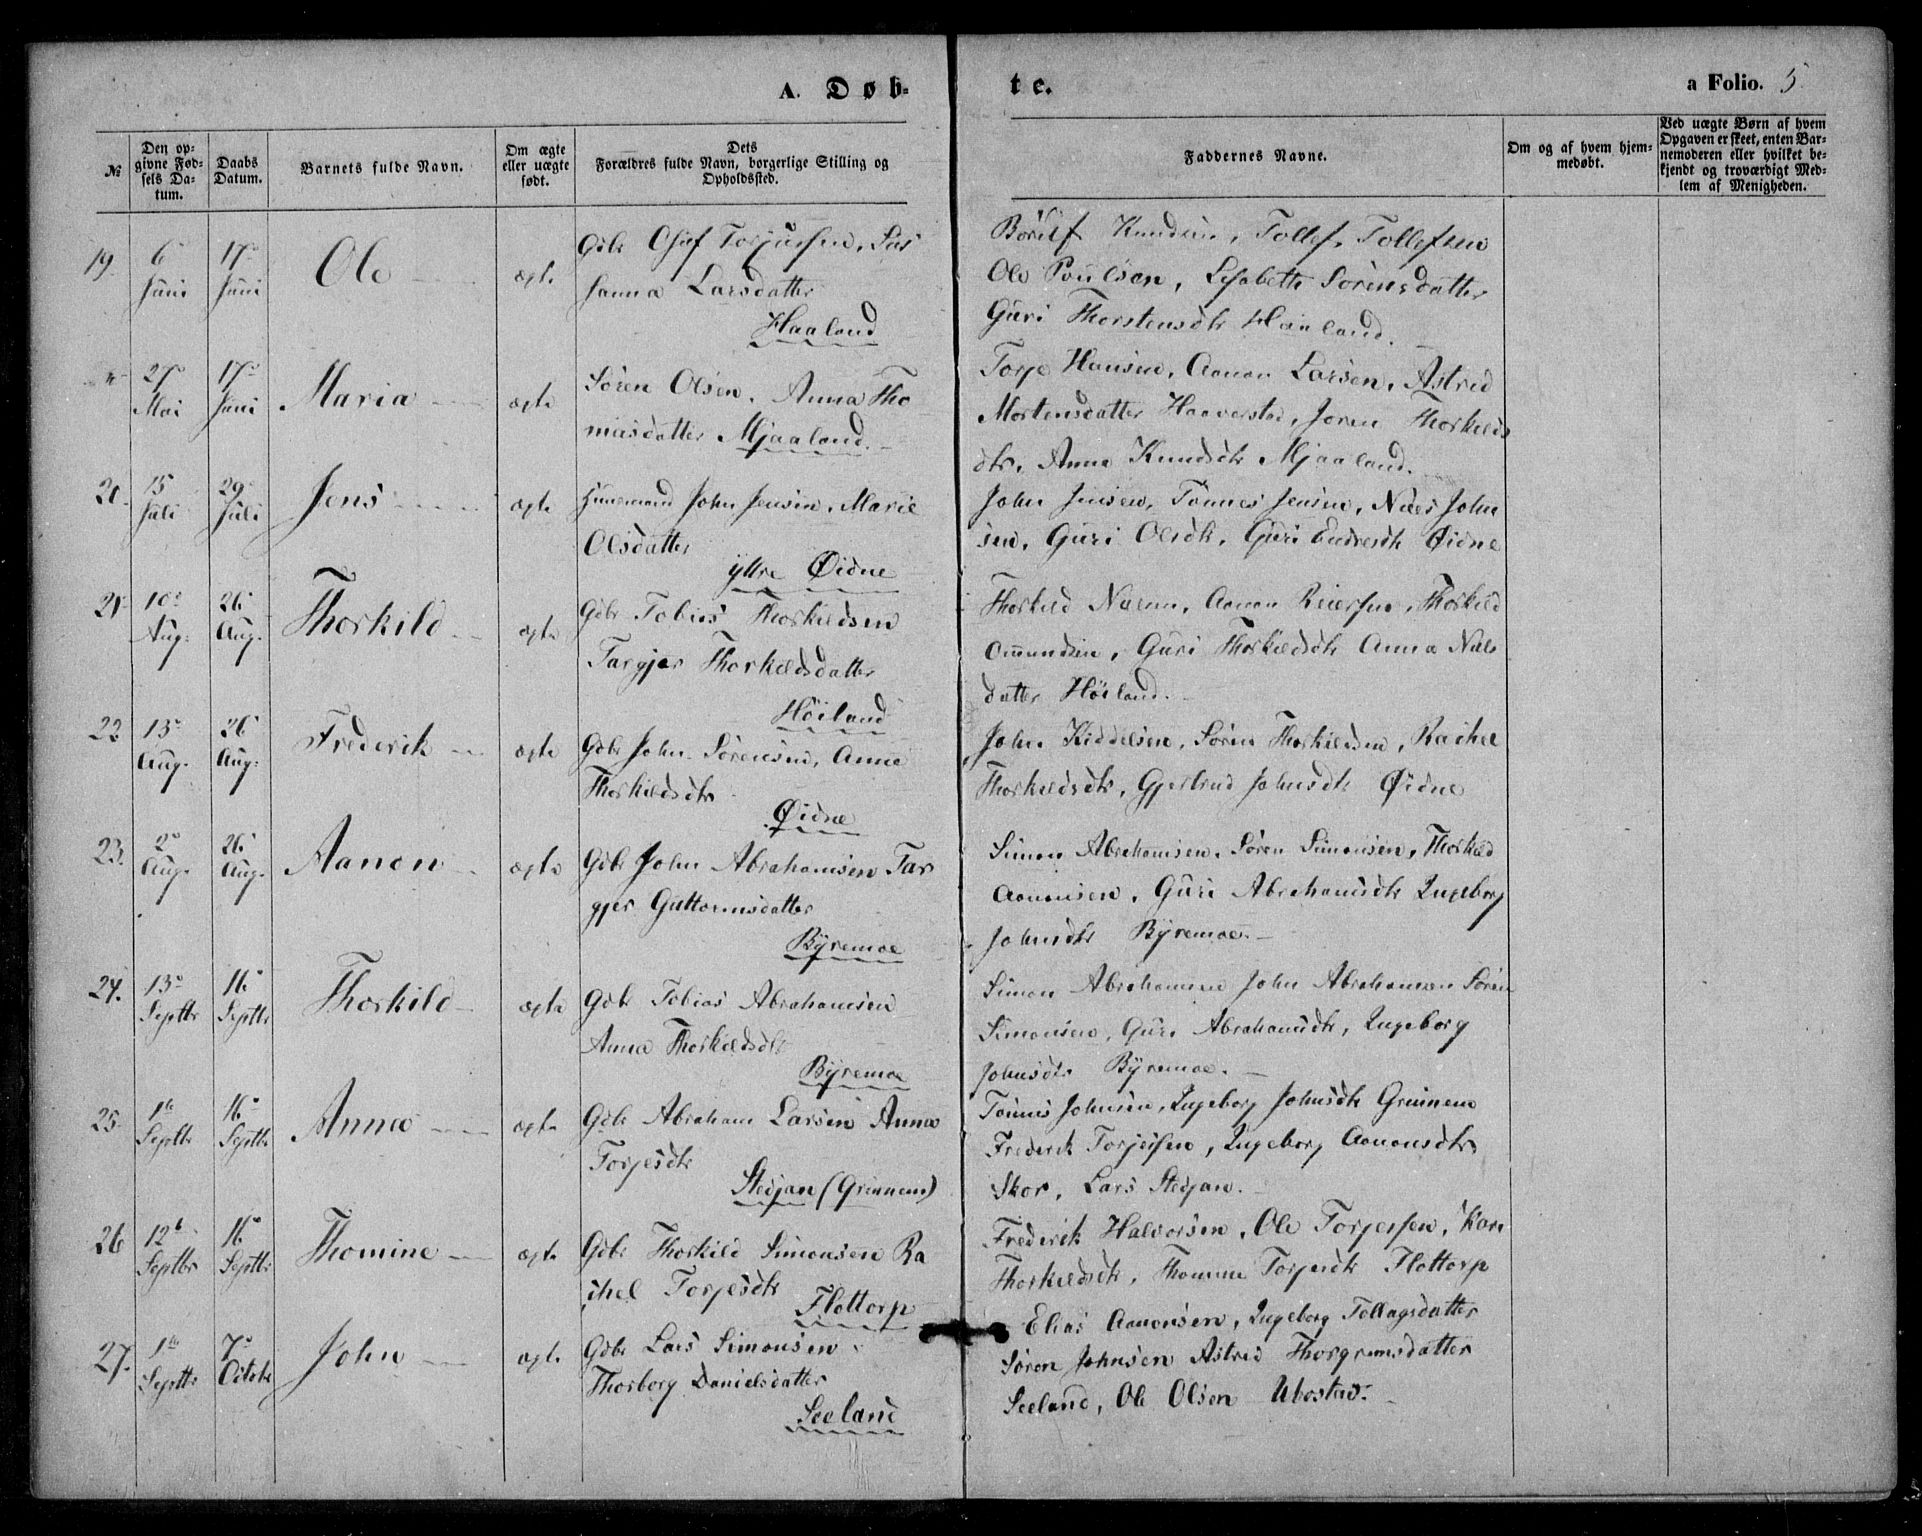 A. Døb-
te.
a Folio. 5
№
Den op-
givne Fød-
sels Da-
tum.
Daabs
Datum.
Barnets fulde Navn.
Om ægte
eller uægte
født.
Dets
Forældres fulde Navn, borgerlige Stilling og
Opholdssted.
Faddernes Navne.
Om og af hvem hjem-
medøbt.
Ved uægte Børn af hvem
Opgaven er skeet, enten Bar-
nemoderen eller hvilket be-
kjendt og troværdigt Med-
lem af Menigheden.
19. 6 Juni 17 Juni Ole ægte
Gdbr Torjussen, Sus
sanna Larsdatter
Haaland
Knudsen, Tollef Tollefsen
Ole Poulsen, Sørensdatter
Guri Thorstensdtr Haaland.
27 Mai 17 Juni Maria ægte
Søren Olsen, Anna Tho
masdatter Mjaaland.
Torje Hansen, Aanon Larsen, Astrid
Mortensdatter Haaverstad, Joren Thorkilds
dtr, Anna Knudsdtr Mjaaland.
20. 15 Juli 29 Juli Jens ægte
John Jensen, Marie
Olsdatter
yttre Øidne
John Jensen, Tønnes Jensen, Niels John
sen, Guri Olsdtr, Guri Endresdtr Øidne
21 10 Aug. 26 Aug. Thorkild ægte
Gdbr Tobias Thorkildsen
Targjer Thorkildsdatter
Høiland
Thorkild Aanon Reiersen, Thorkild
Omundsen, Guri Thorkildsdtr Anna Niels
datter Høiland.
22 13 Aug. 26 Aug. Frederik ægte
Gdbr John Sørensen, Anne
Thorkildsdtr
Øidne
John Kiddelsen, Søren Thorkildsen, Rachel
Thorkildsdtr, Gjertrud Johnsdtr Øidne
23. 2 Aug. 26 Aug. Aanon ægte
Gdbr John Abrahamsen Tar
gjer Guttormsdatter
Byremoe
Simon Abrahamsen, Søren Simonsen, Thorkild
Aanonsen, Guri Abrahamsdtr Ingeborg
Johnsdtr Byremoe.
24. 13 Septbr 16 Septbr Thorkild ægte
Gdbr Tobias Abrahamsen
Anna Thorkildsdtr
Byremoe
Simon Abrahamsen John Abrahamsen Søren
Simonsen, Guri Abrahamsdtr, Ingeborg
Johnsdtr Byremoe.
25. Septbr 16 Septbr Anna ægte
Gdbr Abraham Larsen Anna
Torjesdtr
Stedjan (Grinnem)
Tønnes Johnsen, Ingeborg Johnsdtr Grinnem
Frederik Torjersen, Ingeborg Aanonsdtr
Skor, Lars Stedjan.
26 12 Septbr 16 Septbr Thomine ægte
Gdbr Thorkild Simonsen Ra
chel Torjesdtr
Flottorp
Frederik Halvorsen, Ole Torjersen, Kari
Thorkildsdtr, Thomine Torjesdtr Flottorp
27. Septbr 7 Octobr John ægte
Gdbr Lars Simonsen
Thorborg Danielsdatter
Seeland
Elias Aanonsen, Ingeborg Tollagsdatter
Søren Johnsen Astrid Thorgrimsdatter
Seeland, Ole Olsen Ubostad.